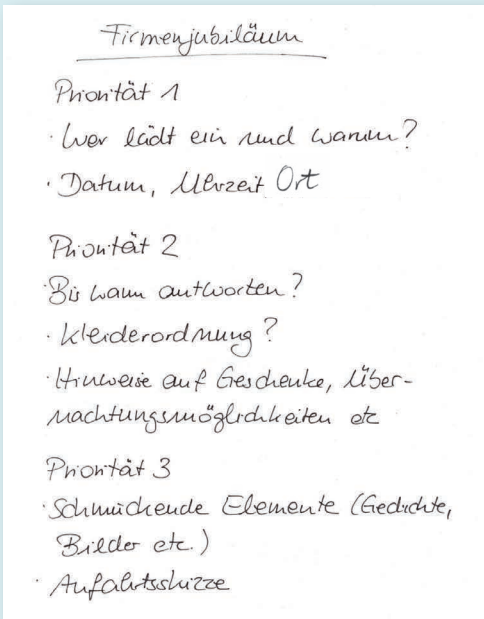 Firmenjubiläum
Priorität 1
· Wer lädt ein und warum?
· Datum, Uhrzeit Ort
Priorität 2
· Bis wann antworten?
· Kleiderordnung?
· Hinweise auf Geschenke, Über-
nachtungsmöglichkeiten etc
Priorität 3
· Schmückende Elemente (Gedichte,
Bilder etc.)
· Anfahrtsskizze